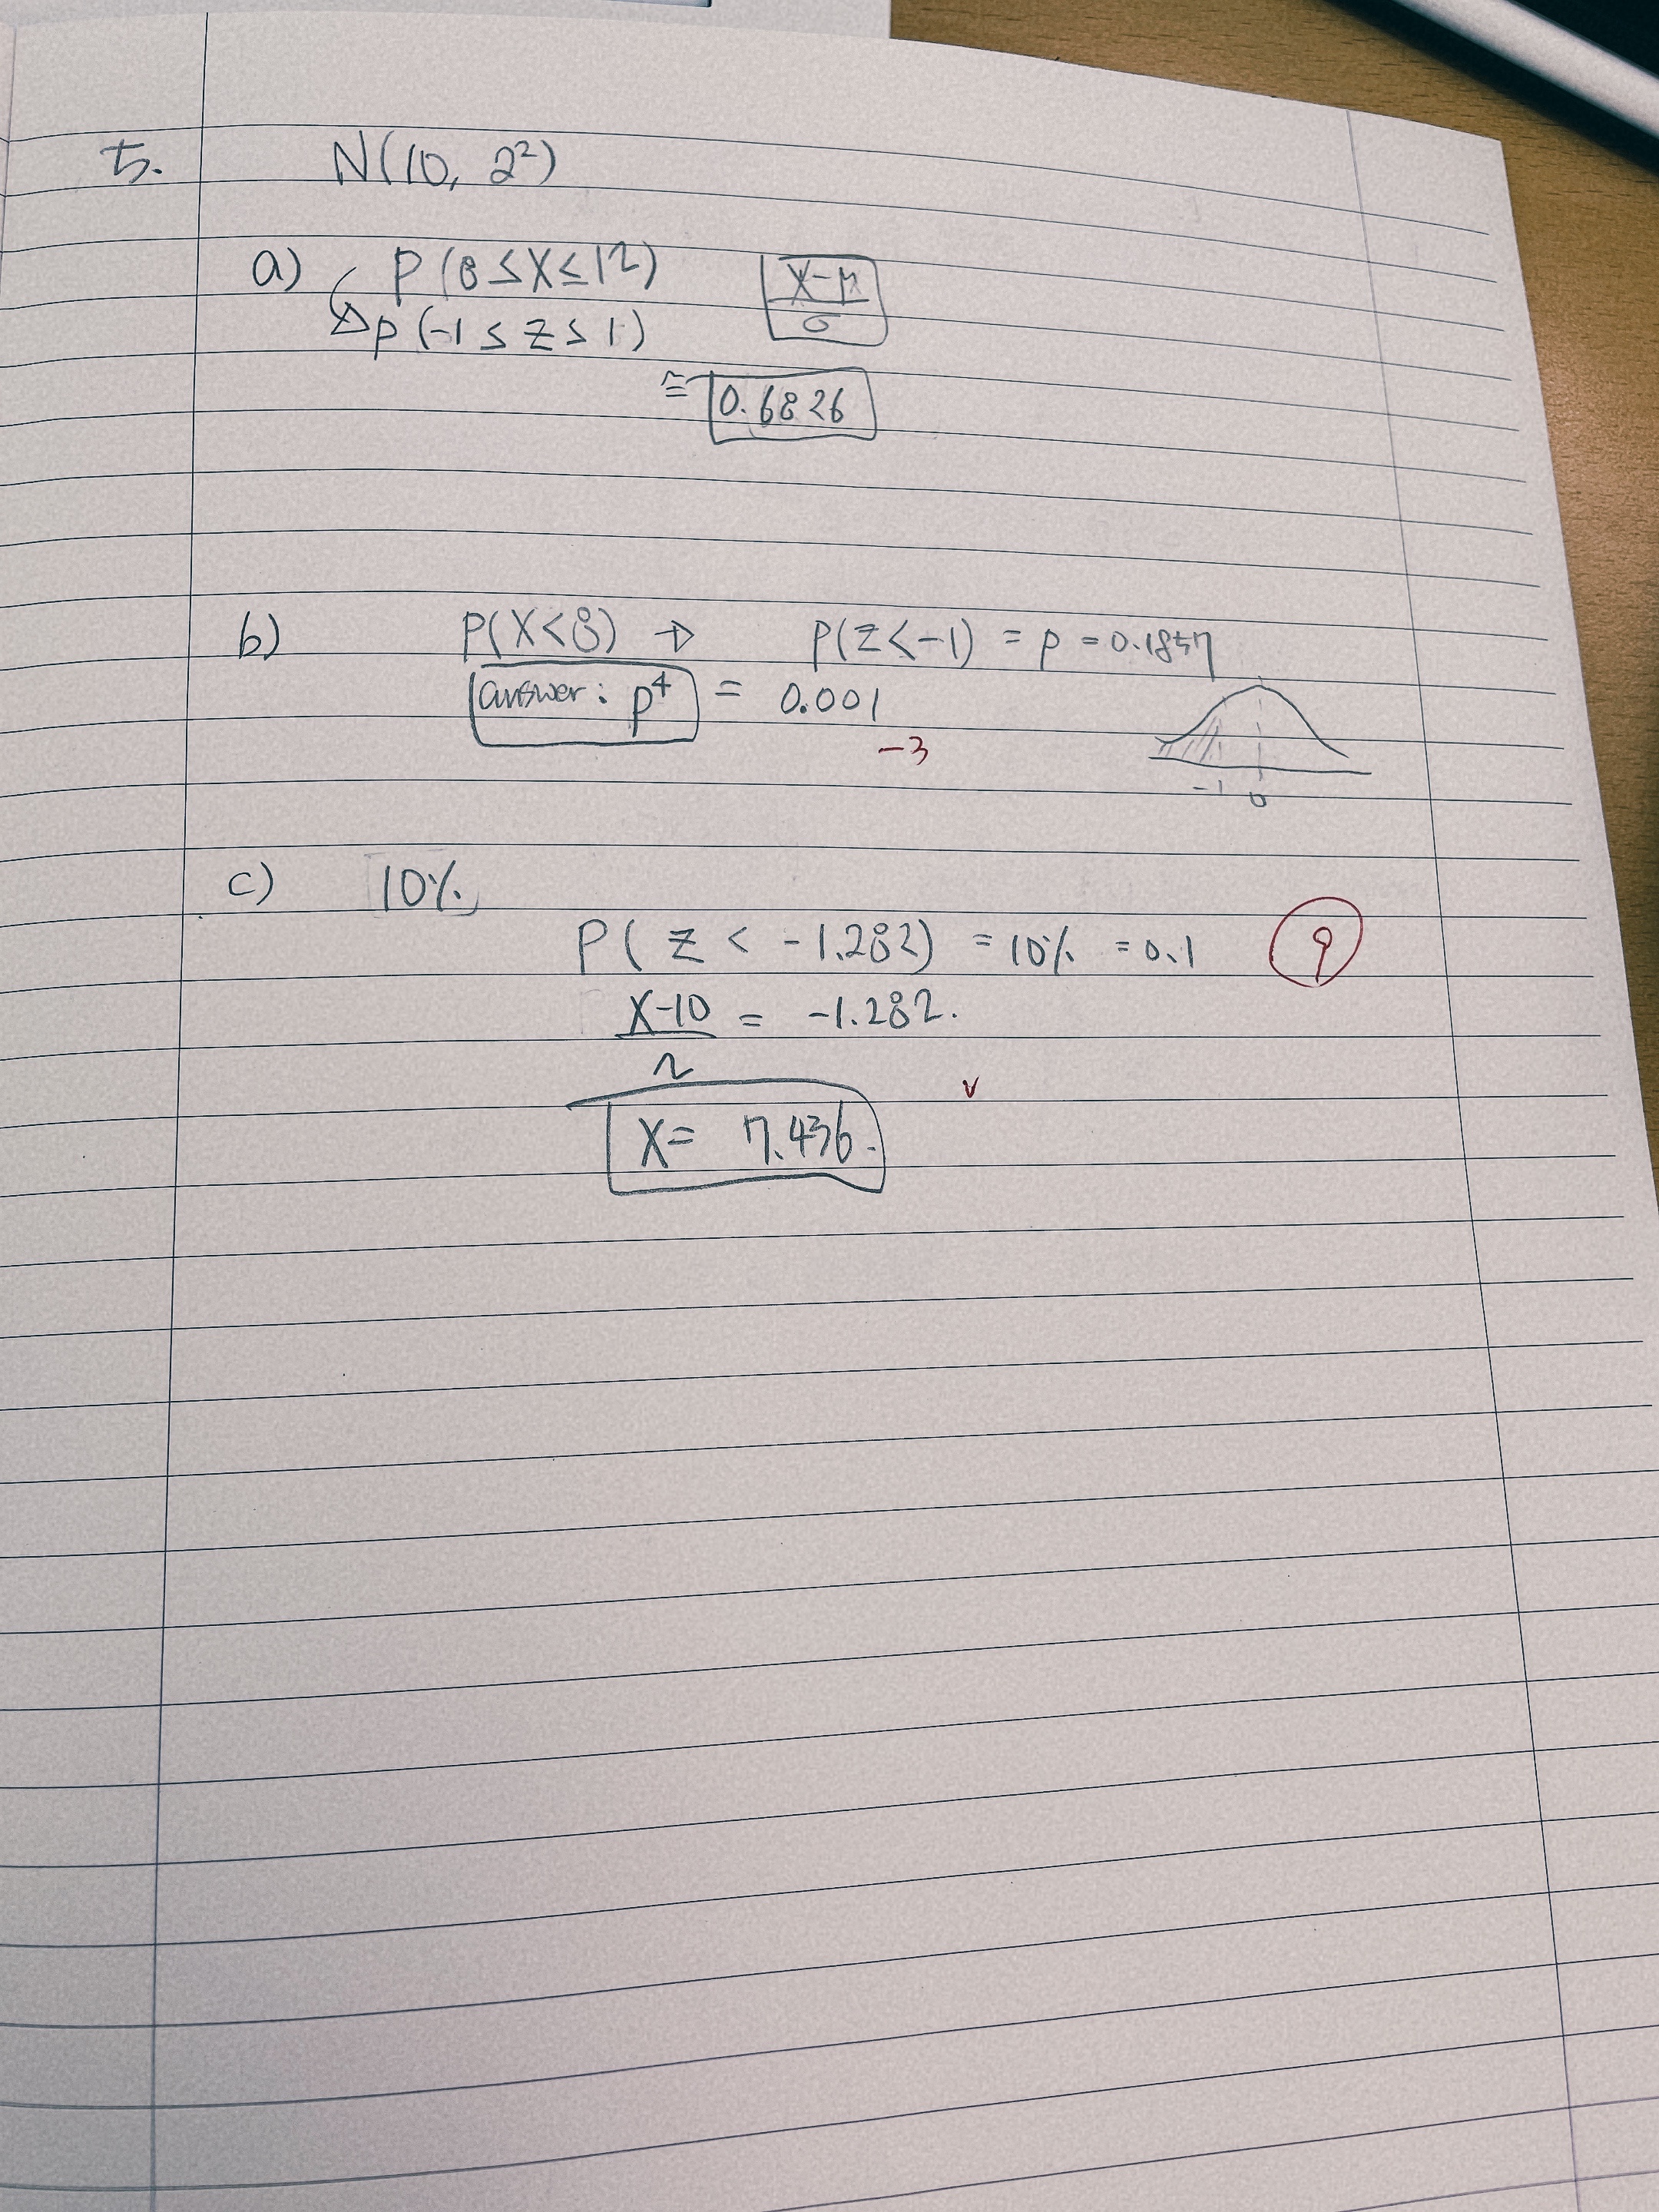 5. N(10, 2²)
a) P(8≤X≤12) X-μ/σ
P(-1≤Z≤1)
≅ 0.6826
b) P(X<8) → P(Z<-1) = p = 0.1857
answer: p⁴ = 0.001
-3
-1 0
c) 10%
P(Z < -1.282) = 10% = 0.1 9
X-10/2 = -1.282.
X= 7.436.